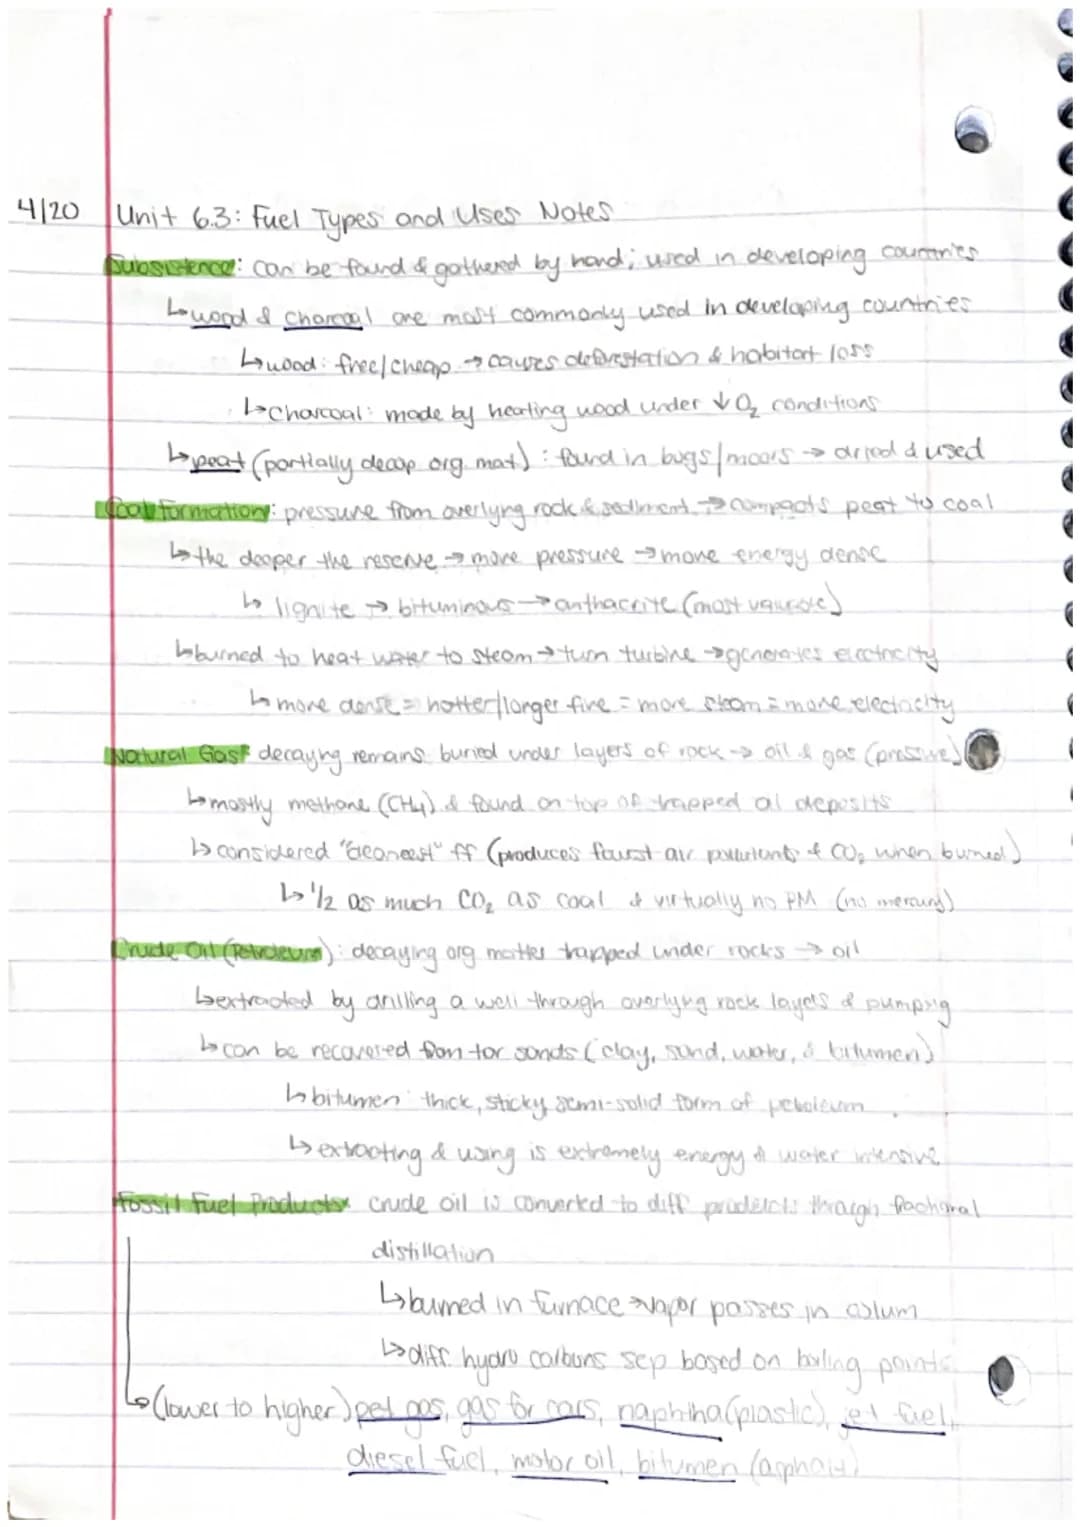 4/20 Unit 6.3: Fuel Types and Uses Notes
Subsistence: can be found & gathered by hand; used in developing countries
↳wood & charcoal are most commonly used in developing countries
↳wood: free/cheap → causes deforestation & habitat loss
↳charcoal: made by heating wood under ↓ O₂ conditions
↳peat (partially decop org. mat): found in bogs/moors → dried & used
Coal Formation: pressure from overlying rock & sediment → compacts peat to coal
↳the deeper the reserve → more pressure → more energy dense
↳ lignite → bituminous → anthacrite (most valuable)
↳burned to heat water to steam → turn turbine → generates electricity
↳ more dense = hotter/longer fire = more steam = more electricity
Natural Gas: decaying remains buried under layers of rock → oil & gas (pressure)
↳mostly methane (CH4) & found on top of trapped oil deposits
↳considered "cleaneest" ff (produces fewest air pollutants & CO₂ when burned)
↳ 1/2 as much CO₂ as coal & virtually no PM (no mercury)
Crude Oil (Petroleum): decaying org matter trapped under rocks → oil
↳extracted by drilling a well through overlying rock layers & pumping
↳can be recovered from tar sands (clay, sand, water, & bitumen)
↳bitumen: thick, sticky semi-solid form of petroleum
↳extracting & using is extremely energy & water intensive
Fossil Fuel Products: crude oil is converted to diff products through fractional
distillation
↳burned in furnace → vapor passes in colum
↳diff. hydro carbons sep based on boiling points
↳(lower to higher) pet gas, gas for cars, naphtha (plastic), jet fuel,
diesel fuel, motor oil, bitumen (asphalt)